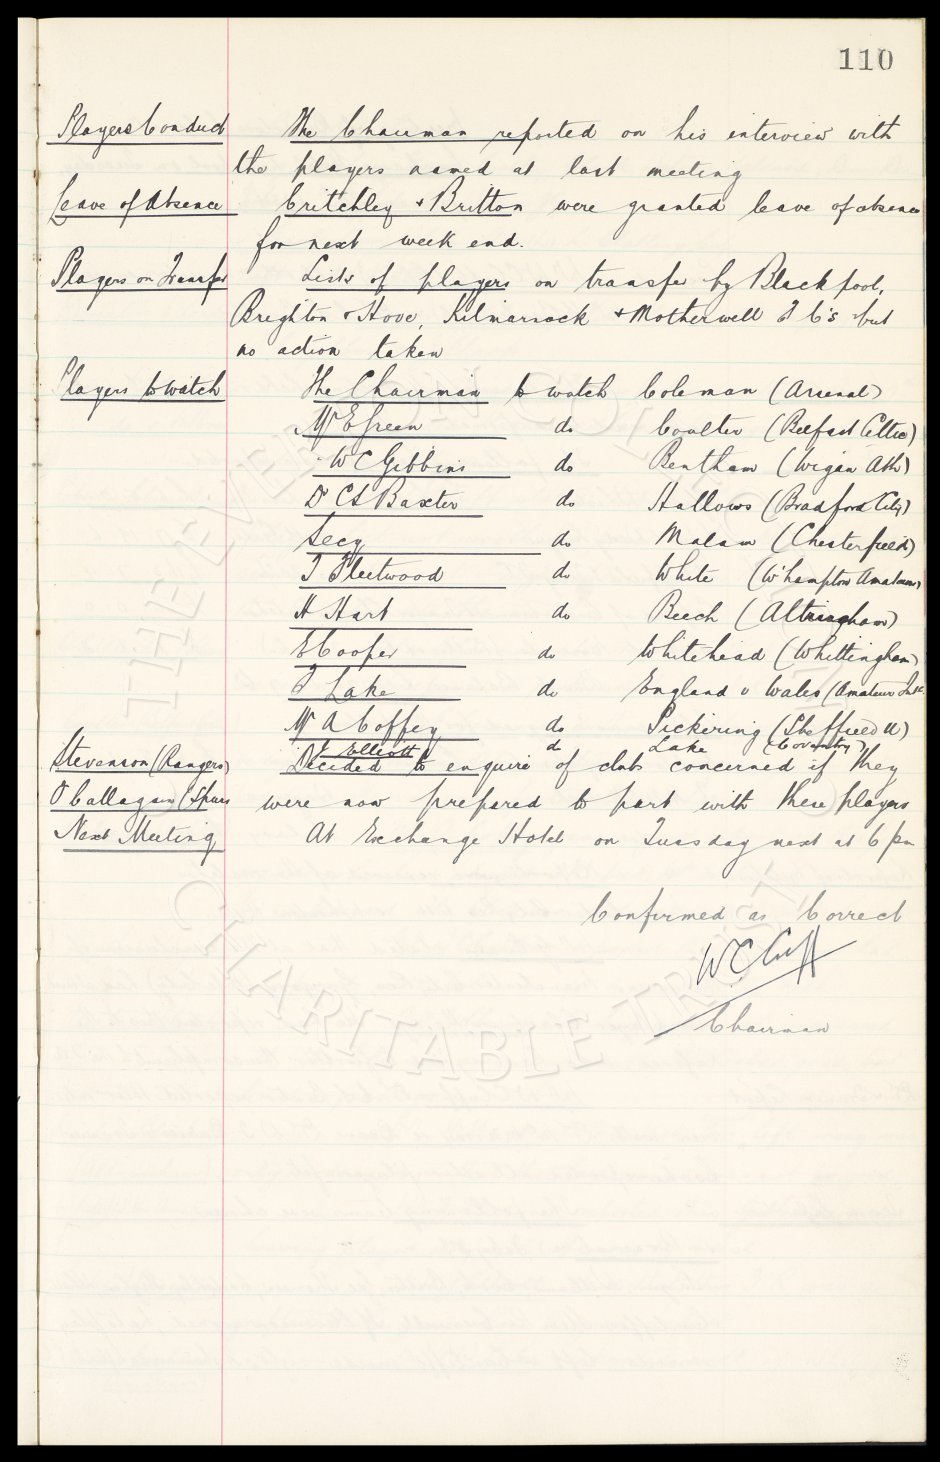 110
Players Conduct The Chairman reported on his interview with
the players named at last meeting
Leave of Absence Critchley & Britton were granted leave of absence
for next week end.
Players on Transfer Lists of players on transfer by Blackpool,
Brighton & Hove, Kilmarnock & Motherwell F C's but
no action taken
Players to watch The Chairman to watch Coleman (Arsenal)
Mr E Green do Coulter (Belfast Celtic)
W C Gibbins do Bentham (Wigan Ath)
Dr C S Baxter do Hallows (Bradford City)
Secy do Malam (Chesterfield)
T Fleetwood do White (W'hampton Amateurs)
H Hart do Beech (Altringham)
E Cooper do Whitehead (Whittingham)
T Lake do England v Wales (Amateur Int)
Mr A Coffey do Pickering (Sheffield U)
J Elliott d Lake (Coventry)
Stevenson (Rangers) Decided to enquire of clubs concerned if they
O'Callagan (Spurs were now prepared to part with these players
Next Meeting At Exchange Hotel on Tuesday next at 6 pm
Confirmed as Correct
W C Cuff
Chairman
THE EVERTON COLLECTION
CHARITABLE TRUST